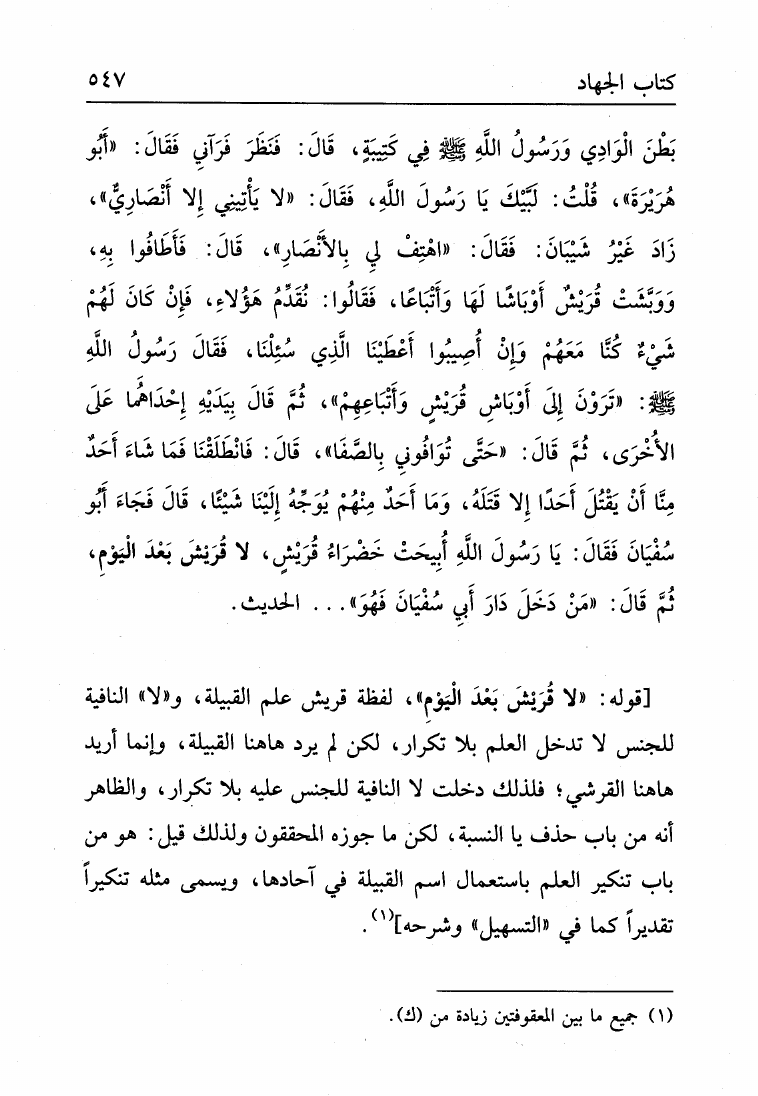 كتاب الجهاد ٥٤٧
بَطْنَ الْوَادِي وَرَسُولُ اللَّهِ ﷺ فِي كَتِيبَةٍ، قَالَ: فَنَظَرَ فَرَآنِي فَقَالَ: «أَبُو
هُرَيْرَةَ»، قُلْتُ: لَبَّيْكَ يَا رَسُولَ اللَّهِ، فَقَالَ: «لا يَأْتِينِي إِلا أَنْصَارِيٌّ»،
زَادَ غَيْرُ شَيْبَانَ: فَقَالَ: «اهْتِفْ لِي بِالأَنْصَارِ»، قَالَ: فَأَطَافُوا بِهِ،
وَوَبَّشَتْ قُرَيْشٌ أَوْبَاشًا لَهَا وَأَتْبَاعًا، فَقَالُوا: نُقَدِّمُ هَؤُلاءِ، فَإِنْ كَانَ لَهُمْ
شَيْءٌ كُنَّا مَعَهُمْ وَإِنْ أُصِيبُوا أَعْطَيْنَا الَّذِي سُئِلْنَا، فَقَالَ رَسُولُ اللَّهِ
ﷺ: «تَرَوْنَ إِلَى أَوْبَاشِ قُرَيْشٍ وَأَتْبَاعِهِمْ»، ثُمَّ قَالَ بِيَدَيْهِ إِحْدَاهُمَا عَلَى
الأُخْرَى، ثُمَّ قَالَ: «حَتَّى تُوَافُونِي بِالصَّفَا»، قَالَ: فَانْطَلَقْنَا فَمَا شَاءَ أَحَدٌ
مِنَّا أَنْ يَقْتُلَ أَحَدًا إِلا قَتَلَهُ، وَمَا أَحَدٌ مِنْهُمْ يُوَجِّهُ إِلَيْنَا شَيْئًا، قَالَ فَجَاءَ أَبُو
سُفْيَانَ فَقَالَ: يَا رَسُولَ اللَّهِ أُبِيحَتْ خَضْرَاءُ قُرَيْشٍ، لا قُرَيْشَ بَعْدَ الْيَوْمِ،
ثُمَّ قَالَ: «مَنْ دَخَلَ دَارَ أَبِي سُفْيَانَ فَهُوَ»... الحديث.
[قوله: «لا قُرَيْشَ بَعْدَ الْيَوْمِ»، لفظة قريش علم القبيلة، و«لا» النافية
للجنس لا تدخل العلم بلا تكرار، لكن لم يرد هاهنا القبيلة، وإنما أريد
هاهنا القرشي؛ فلذلك دخلت لا النافية للجنس عليه بلا تكرار، والظاهر
أنه من باب حذف يا النسبة، لكن ما جوزه المحققون ولذلك قيل: هو من
باب تنكير العلم باستعمال اسم القبيلة في آحادها، ويسمى مثله تنكيراً
تقديراً كما في «التسهيل» وشرحه](١).
(١) جميع ما بين المعقوفتين زيادة من (ك).